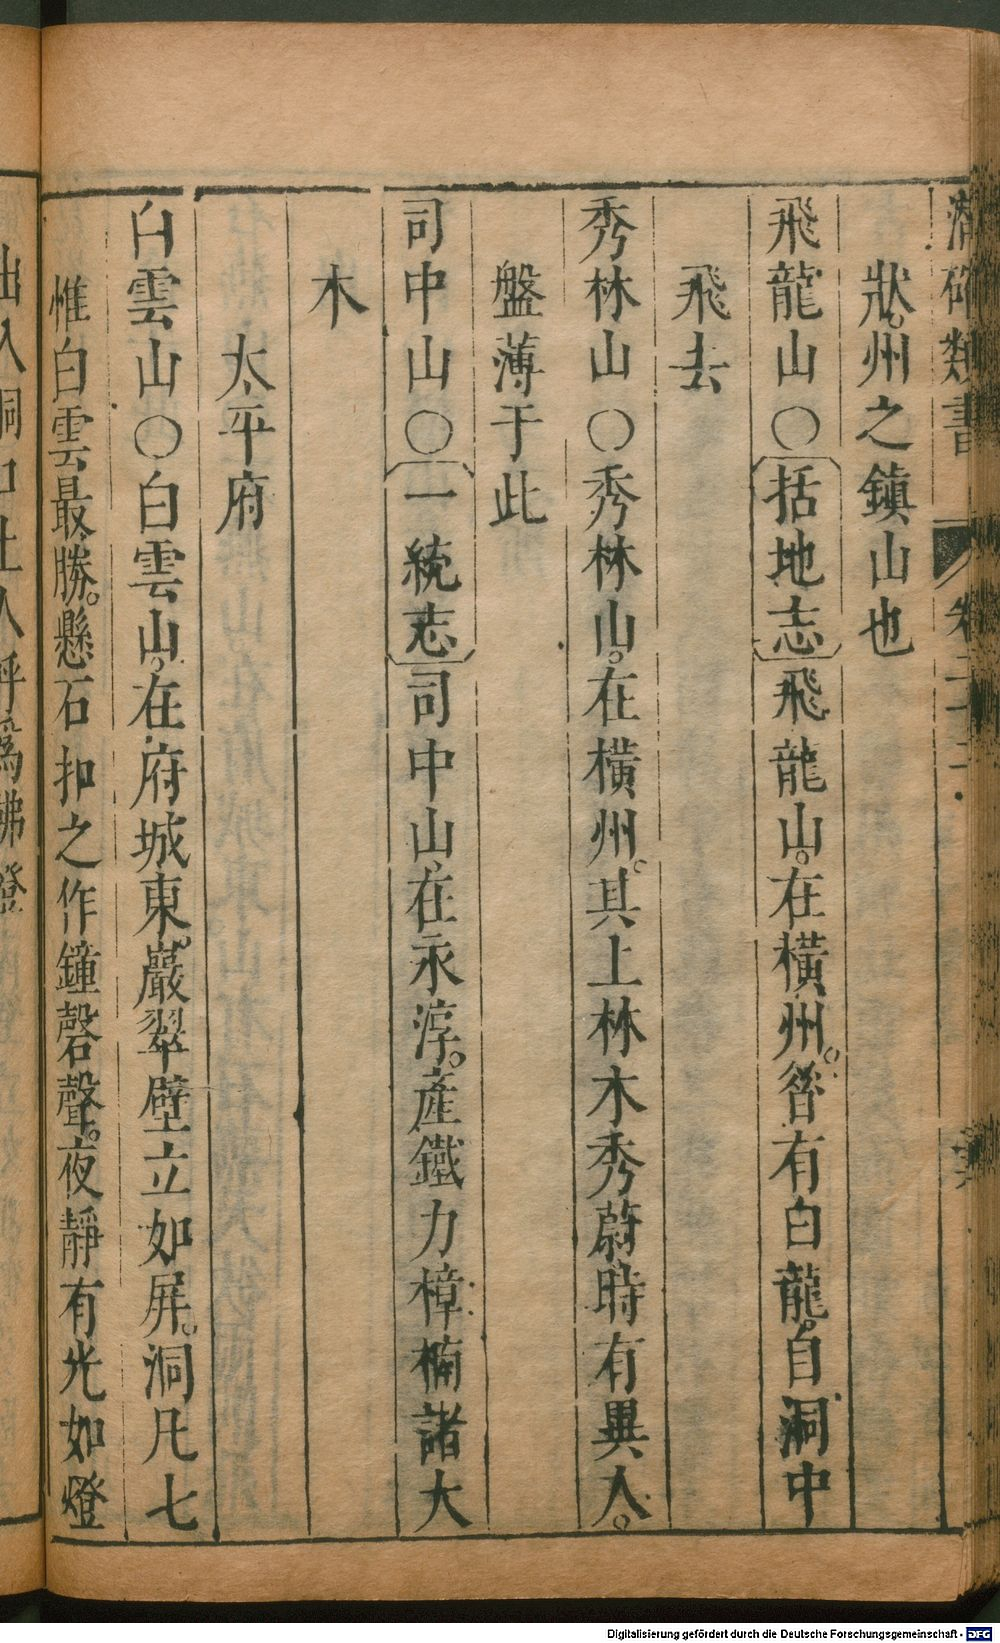 潛確類書 卷二十二
狀。州之鎮山也
飛龍山〇括地志飛龍山。在橫州。昝有白龍。自洞中
飛去
秀林山〇秀林山。在橫州。其上林木秀蔚時有異人。
盤薄于此
司中山〇一統志司中山。在永淳。產鐵力樟楠諸大
木
太平府
白雲山〇白雲山。在府城東。巖翠壁立如屏。洞凡七
惟白雲最勝。懸石扣之作鐘磬聲。夜靜有光如燈
出入洞口土人呼為佛燈
Digitalisierung gefördert durch die Deutsche Forschungsgemeinschaft - DFG